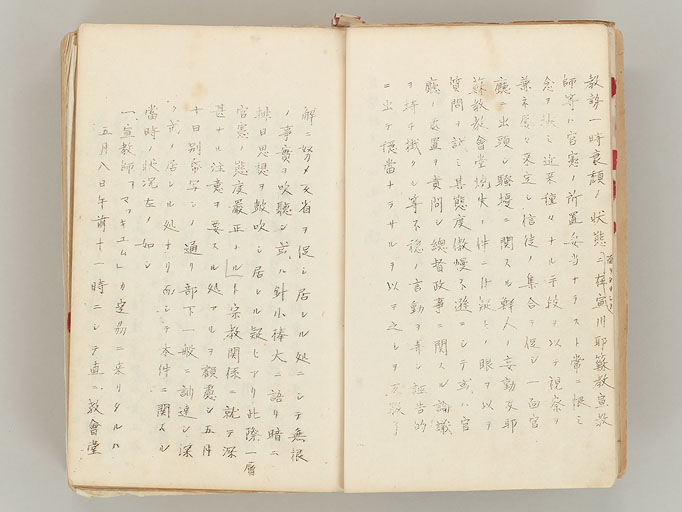 教誨一時衰頽ノ状態ニ在
宣川耶蘇教宣教
師等ハ官憲ノ所置妥当ナラスト常ニ恨ミ
念ヲ狭ミ近来種々ナル手段ヲ以テ視察ヲ
兼ネ屡々来定シ信徒ノ集合ヲ促シ一面官
廳ニ出頭シ騒擾ニ関スル鮮人ノ妄動及耶
蘇教教會堂焼失ノ件ニ付疑ヒノ眼ヲ以テ
質問ヲ試ミ其態度傲慢不遜ニシテ或ハ官
廳ノ処置ヲ責問シ総督政事ニ関スル論議
ヲ持チ不穏ノ言動ヲ弄シ誣告的
ニ出テ穏當ナラサルヲ以テ之レヲ
解ニ努メ反省ヲ促シ居レル処ニシテ無根
ノ事實ヲ吹聴シ或ハ針小棒大ニ語リ暗ニ
排日思想ヲ鼓吹シ居レル疑ヒアリ此際一層
官憲ノ態度嚴正ト宗教関係ニ就テ深
甚ナル注意ヲ要スル処アルヲ顧慮シ五月
十日別紙写シノ通リ部下一般ニ訓達シ深
ク戒メ居レル処ナリ而シテ本件ニ関スル
當時ノ状況左ノ如シ
一、宣教師マッキユムレカ定州ニ来リタルハ
五月八日午前十一時ニシテ直ニ教會堂